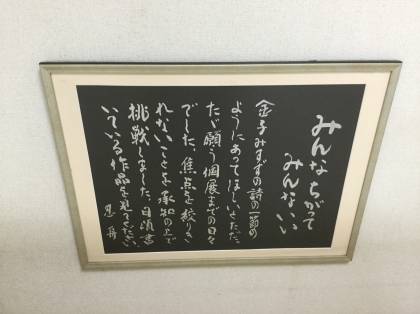 みんなちがって
みんないい
金子みすずの詩の一節の
ようにあってほしいとただ、
ただ願う個展までの日々
でした。焦点を絞りき
れないことを承知の上で
挑戦しました。日頃書
いている作品を見てください。